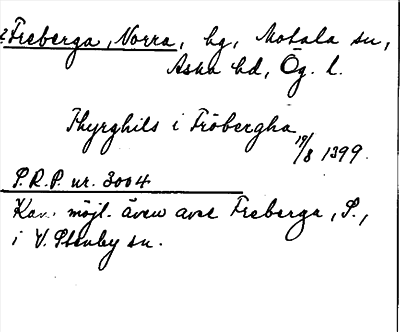 ? Freberga, Norra, by, Motala sn,
Aska hd, Ög. l.
Thyrghils i Fröbergha
19/8 1399.
P.R.P. nr. 3004
Kan möjl. även avse Freberga, S.,
i V. Stenby sn.